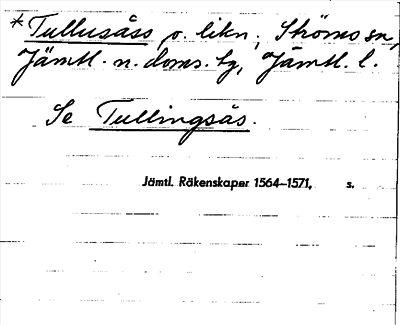 * Tullusåss o. likn., Ströms sn,
Jämtl. n. doms. tg, Jämtl. l.
Se Tullingsås.
Jämtl. Räkenskaper 1564–1571, s.